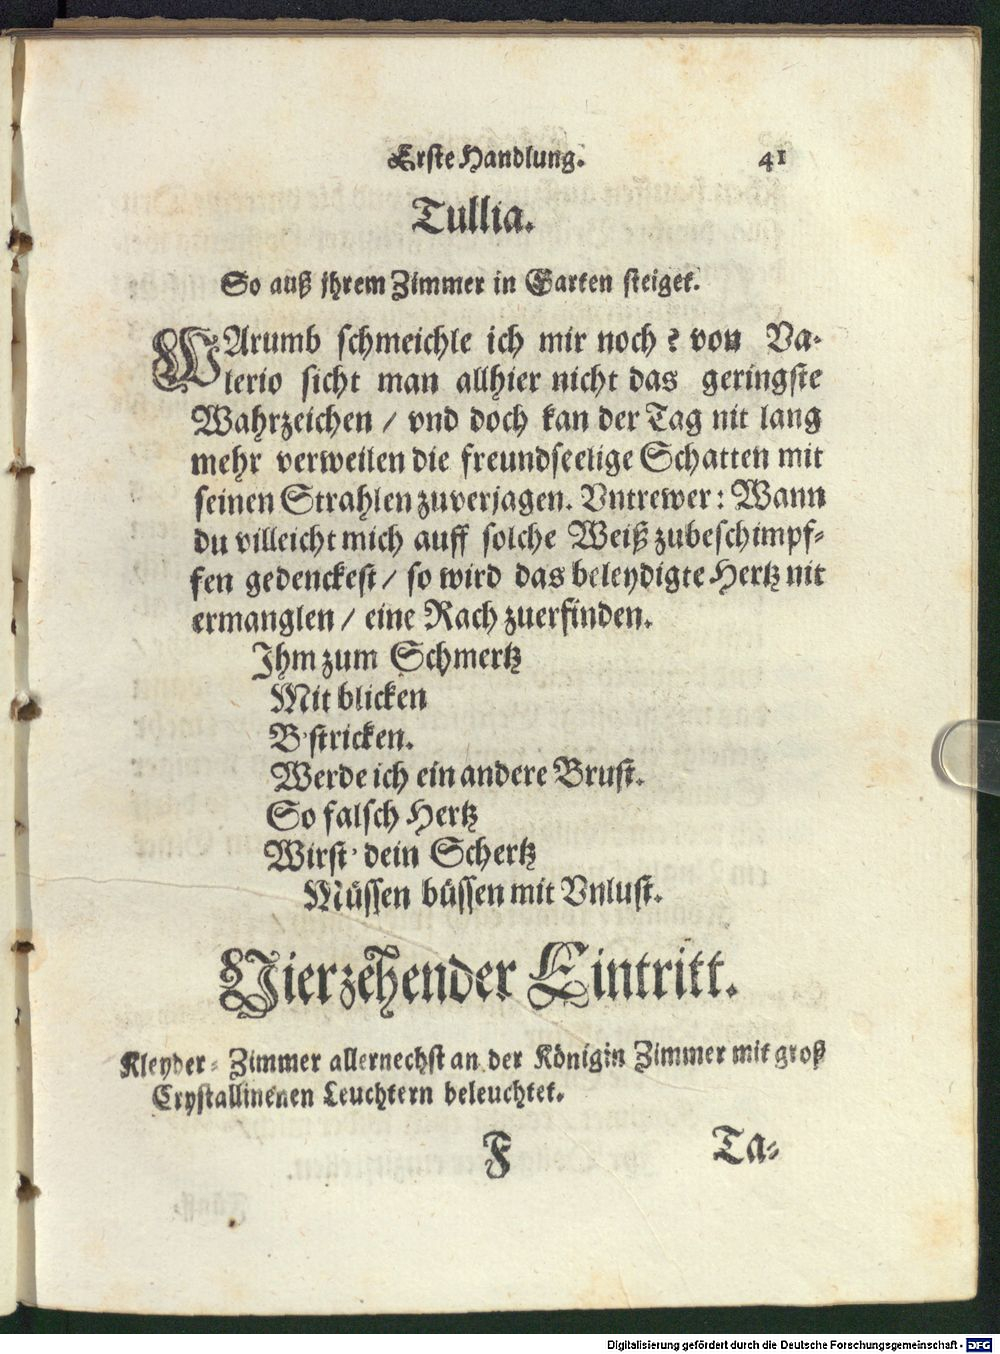 Erste Handlung. 41
Tullia.
So auß jhrem Zimmer in Garten steiget.
WArumb schmeichle ich mir noch? von Va-
lerio sicht man allhier nicht das geringste
Wahrzeichen / vnd doch kan der Tag nit lang
mehr verweilen die freundseelige Schatten mit
seinen Strahlen zuverjagen. Vntrewer: Wann
du villeicht mich auff solche Weiß zubeschimpf-
fen gedenckest / so wird das beleydigte Hertz nit
ermanglen / eine Rach zuerfinden.
Ihm zum Schmertz
Mit blicken
B'stricken.
Werde ich ein andere Brust.
So falsch Hertz
Wirst' dein Schertz
Müssen büssen mit Vnlust.
Vierzehender Eintritt.
Kleyder-Zimmer allernechst an der Königin Zimmer mit groß
Crystallinenen Leuchtern beleuchtet.
F Ta-
Digitalisierung gefördert durch die Deutsche Forschungsgemeinschaft - DFG